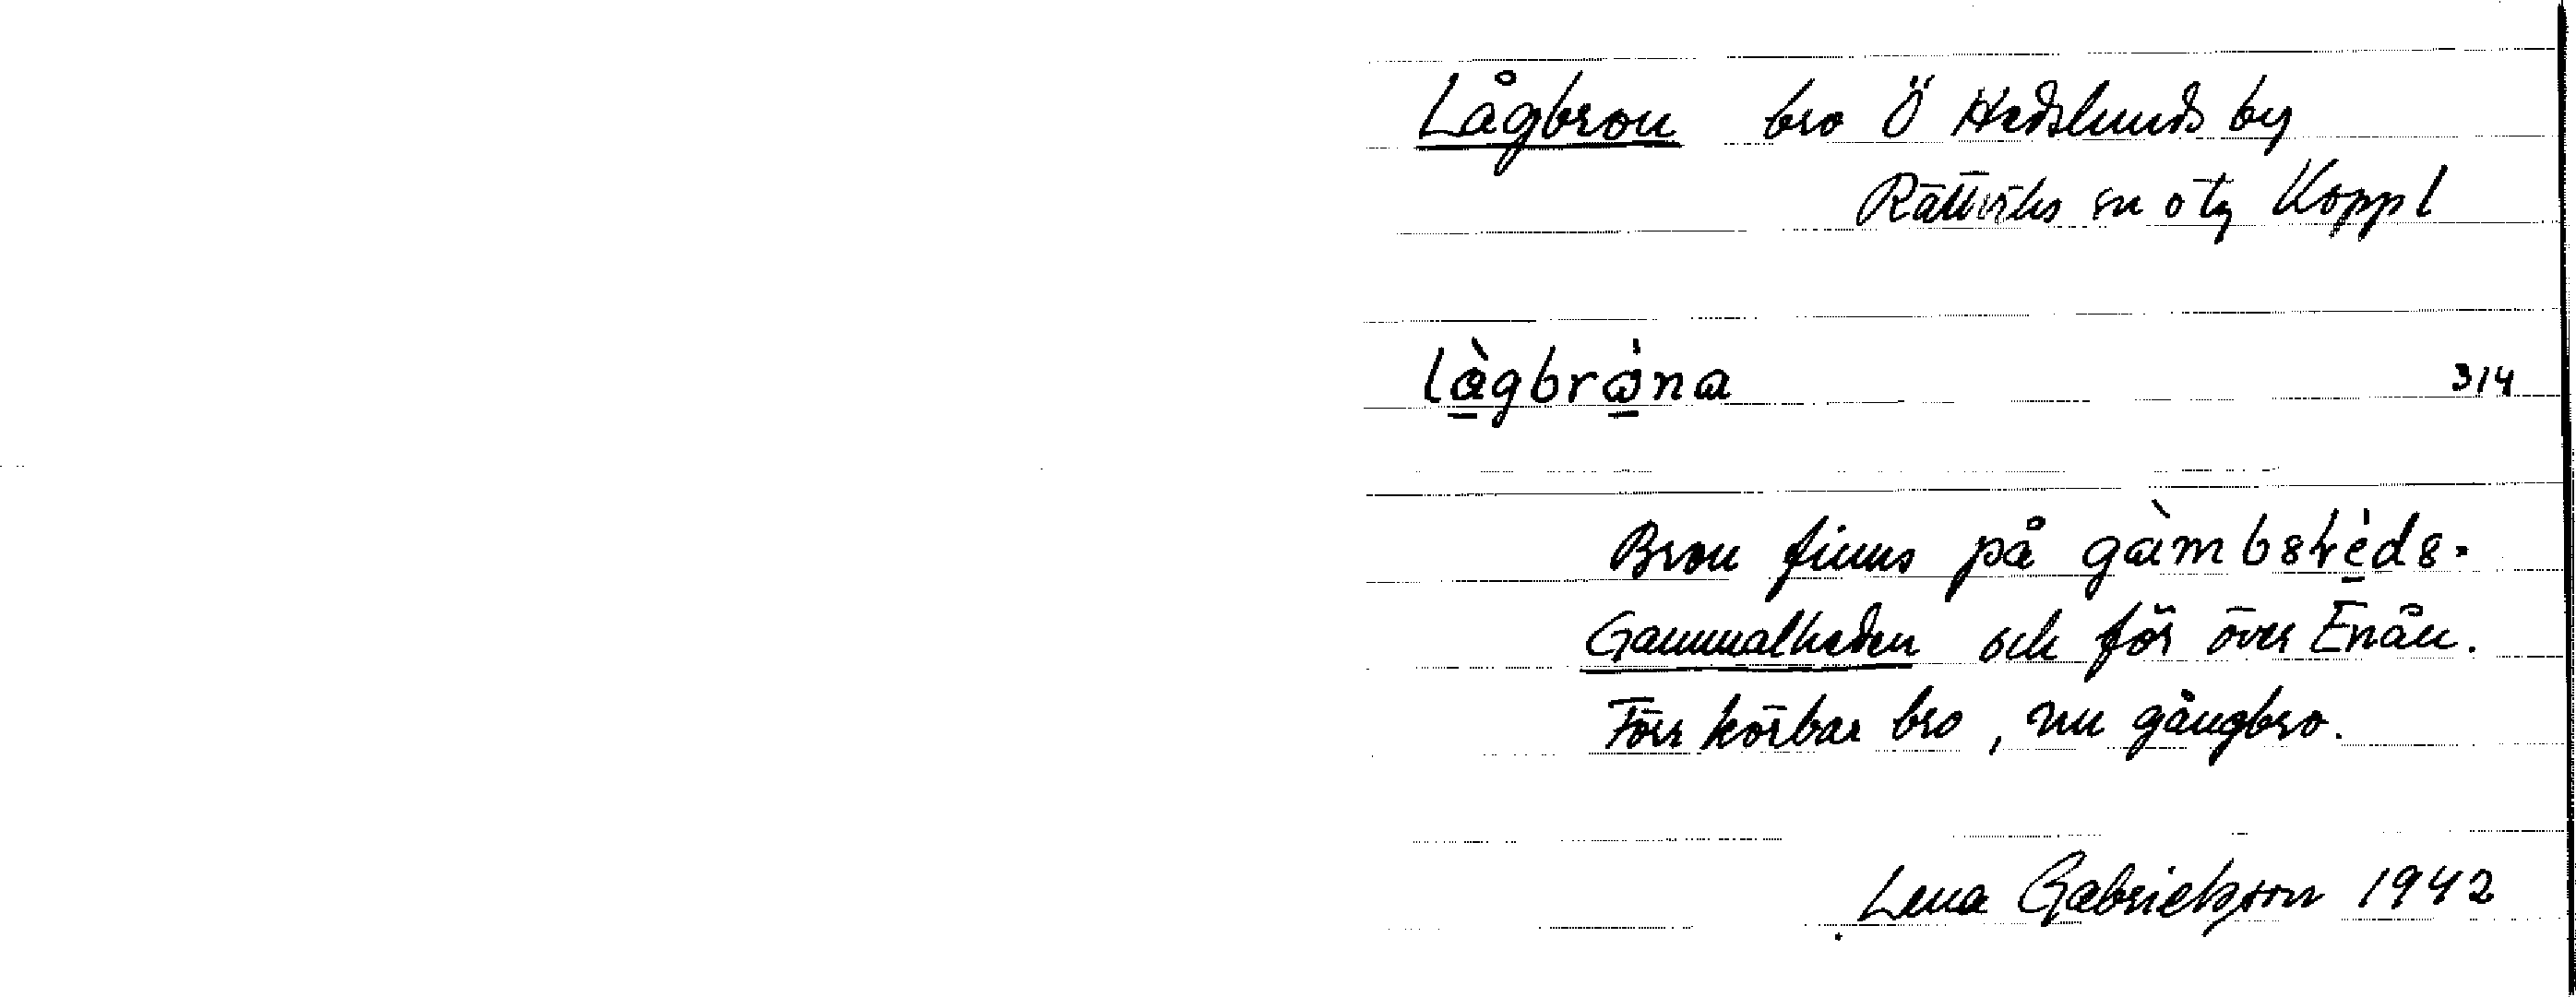 Lågbron bro Ö Hedslunds by
Rättviks sn o tg Koppl
làgbrȧ̀na 314
Bron finns på
Gammalheden och för över Enån.
Förr körbar bro, nu gångbro.
Lena Gabrielsson 1942